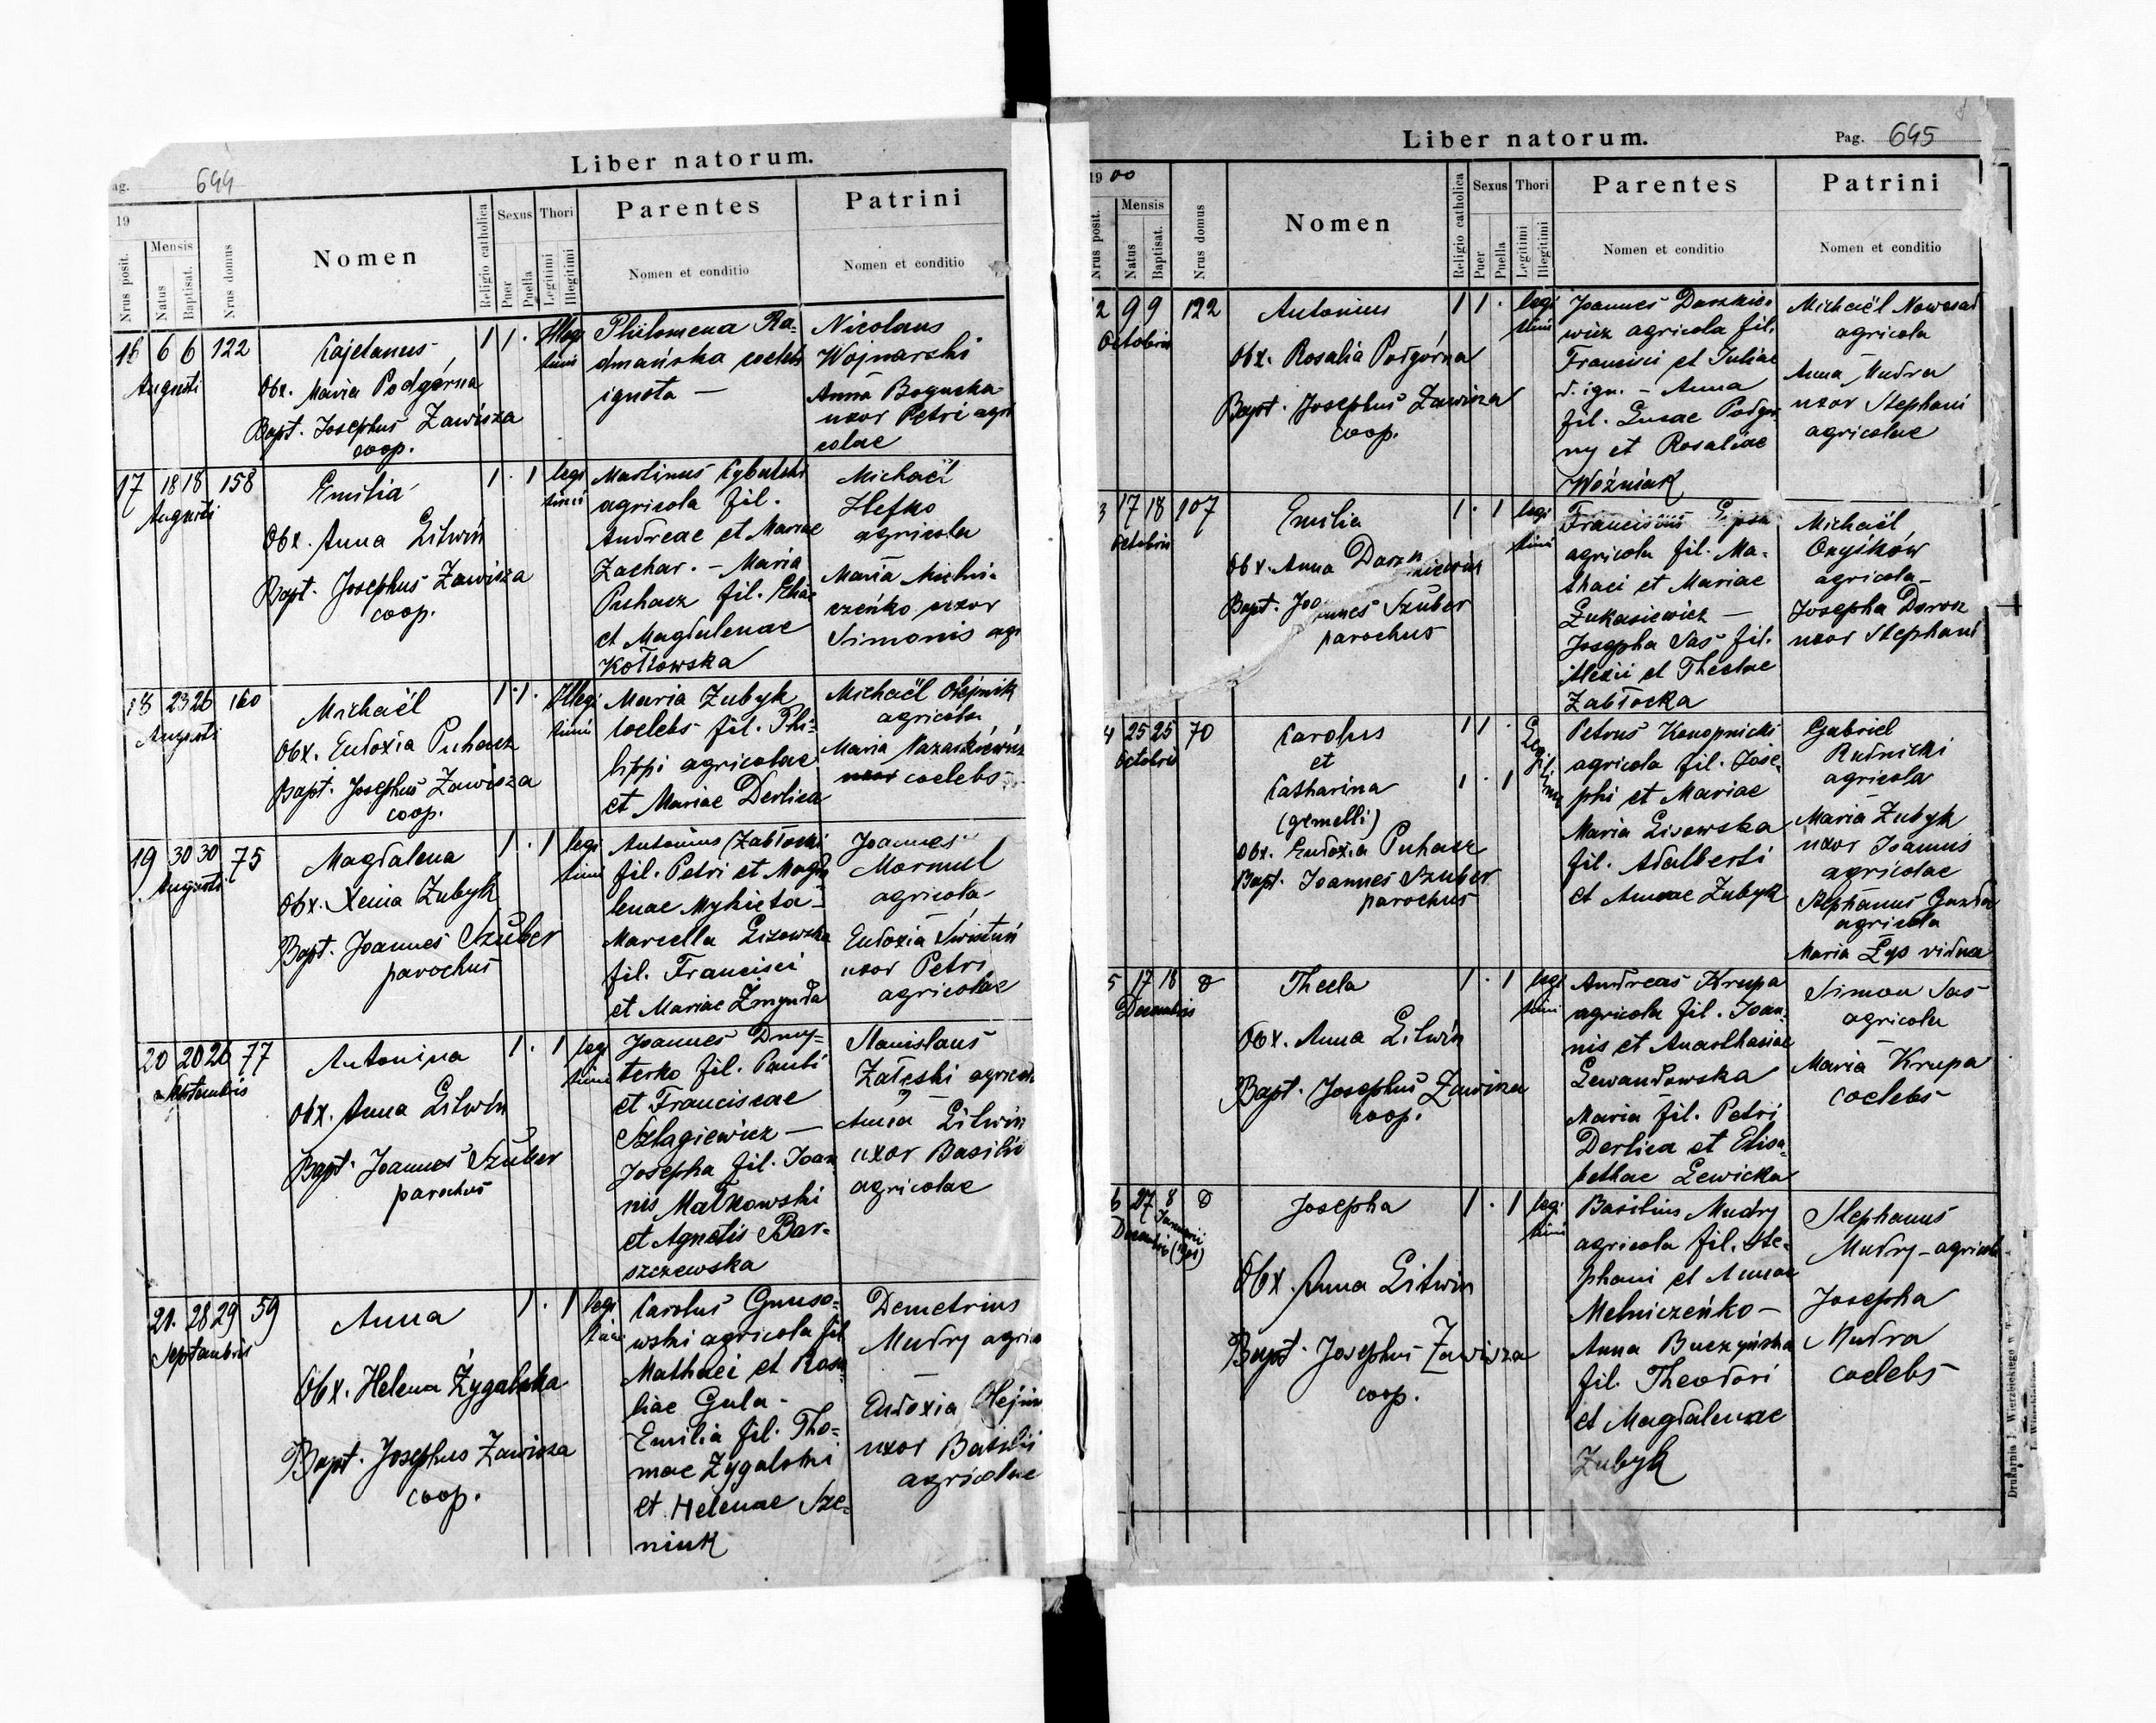 ag. 644
Liber natorum.
19
Nrus posit.
Mensis
Natus
Baptisat.
Nrus domus
Nomen
Religio catholica
Sexus
Puer
Puella
Thori
Legitimi
Illegitimi
Parentes
Nomen et conditio
Patrini
Nomen et conditio
16 6 6 122
Augusti
Cajetanus
Obx. Maria Podgórna
Bapt. Josephus Zawisza
coop.
1 1 .
Illegi
timi
Philomena Ra=
dmańska coelebs
ignota —
Nicolaus
Wojnarski
Anna Boguska
uxor Petri agri
colae
17 18 18 158
Augusti
Emilia
Obx. Anna Litwin
Bapt. Josephus Zawisza
coop.
1 . 1
legi
timi
Martinus
agricola fil.
Andreae et Mariae
Zachar. — Maria
Puhacz fil. Eliae
et Magdalenae
Kotłowska
Michaël
Hefko
agricola
Maria Melni-
czeńko uxor
Simonis agr
18 23 26 160
Augusti
Michaël
Obx. Eudoxia Puhacz
Bapt. Josephus Zawisza
coop.
1 . 1 .
Illegi
timi
Maria Zubyk
coelebs fil. Phi=
lippi agricolae
et Mariae Derlica
Michaël Olejnik
agricola
Maria Nazarkiewicz
uxor coelebs
19 30 30 75
Augusti
Magdalena
Obx. Xenia Zubyk
Bapt. Joannes Szuber
parochus
1 . 1
legi
timi
Antonius Zabłocki
fil. Petri et Magda
lenae Mykieta —
Marcella Lisowska
fil. Francisci
et Mariae Zmynda
Joannes
Marmul
agricola
Eudoxia Świstuń
uxor Petri
agricolae
20 20 26 77
Septembris
Antonina
Obx. Anna Litwin
Bapt. Joannes Szuber
parochus
1 . 1
legi
timi
Joannes Dmy=
terko fil. Pauli
et Franciscae
Szlagiewicz —
Josepha fil. Joan
nis Małkowski
et Agnetis Bar-
szczewska
Stanislaus
Załeski agricola
Anna Litwin
uxor Basilii
agricolae
21. 28 29 59
Septembris
Anna
Obx. Helena Żygalska
Bapt. Josephus Zawisza
coop.
1 . 1
legi
timi
Carolus Gruso=
wski agricola fil
Mathaei et Rosa
liae Gula -
Emilia fil. Tho=
mae Żygalski
et Helenae Sze=
niuk
Demetrius
Mudry agric
Eudoxia Olejni
uxor Basilii
agricolae
Liber natorum.
Pag. 645
19 00
Nrus posit.
Mensis
Natus
Baptisat.
Nrus domus
Nomen
Religio catholica
Sexus
Puer
Puella
Thori
Legitimi
Illegitimi
Parentes
Nomen et conditio
Patrini
Nomen et conditio
2 9 9 122
Octobris
Antonius
Obx. Rosalia Podgórna
Bapt. Josephus Zawisza
coop.
1 1 .
legi
timi
Joannes Daszkie=
wicz agricola fil.
Francisci et Juliae
d. ign. — Anna
fil. Lucae Podgór
ny et Rosaliae
Woźniak
Michaël Nowosad
agricola
Anna Mudra
uxor Stephani
agricolae
3 17 18 107
Octobris
Emilia
Obx. Anna
Bapt. Joannes Szuber
parochus
1 . 1
legi
timi
Franciscus
agricola fil. Ma-
thaei et Mariae
Łukasiewicz —
Josepha Sas fil.
Alexii et Theclae
Zabłocka
Michaël
Onyśków
agricola —
Josepha Dorosz
uxor Stephani
4 25 25 70
Octobris
Carolus
et
Catharina
(gemelli)
Obx. Eudoxia Puhacz
Bapt. Joannes Szuber
parochus
1 1 .
1 . 1
Legitimi
Petrus Konopnicki
agricola fil. Jose=
phi et Mariae
Maria Lisowska
fil. Adalberti
et Annae Zubyk
Gabriel
Rudnicki
agricola
Maria Zubyk
uxor Joannis
agricolae
Stephanus Gunda
agricola
Maria Łys vidua
5 17 18 d
Decembris
Thecla
Obx. Anna Litwin
Bapt. Josephus Zawisza
coop.
1 . 1
legi
timi
Andreas Krupa
agricola fil. Joan
nis et Anasthasiae
Lewandowska
Maria fil. Petri
Derlica et Elisa=
bethae Lewicka
Simon Sas
agricola
Maria Krupa
coelebs
6 27 8 d
Decembris Januarii (1901)
Josepha
Obx. Anna Litwin
Bapt. Josephus Zawisza
coop.
1 . 1
legi
timi
Basilius Mudry
agricola fil. Ste=
phani et Annae
Melniczeńko —
Anna Buczyńska
fil. Theodori
et Magdalenae
Zubyk
Stephanus
Mudry — agricola
Josepha
Mudra
coelebs
Drukarnia J. Wierzbickiego w